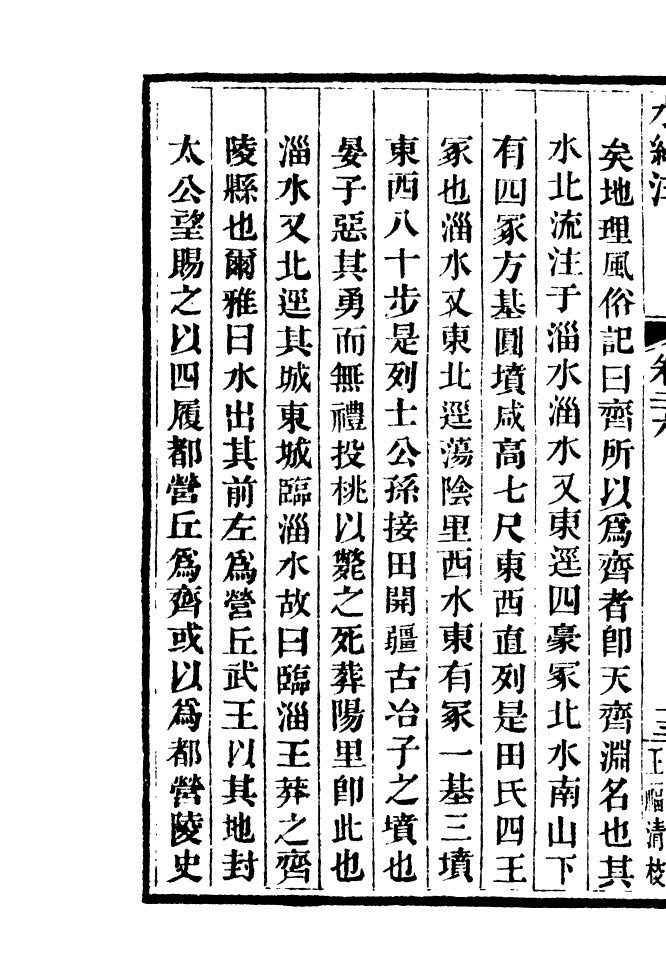 水經注 卷二六
矣地理風俗記曰齊所以爲齊者卽天齊淵名也其
水北流注于淄水淄水又東逕四豪冢北水南山下
有四冢方基圓墳咸高七尺東西直列是田氏四王
冢也淄水又東北逕蕩陰里西水東有冢一基三墳
東西八十步是列士公孫接田開疆古冶子之墳也
晏子惡其勇而無禮投桃以斃之死葬陽里卽此也
淄水又北逕其城東城臨淄水故曰臨淄王莽之齊
陵縣也爾雅曰水出其前左爲營丘武王以其地封
太公望賜之以四履都營丘爲齊或以爲都營陵史